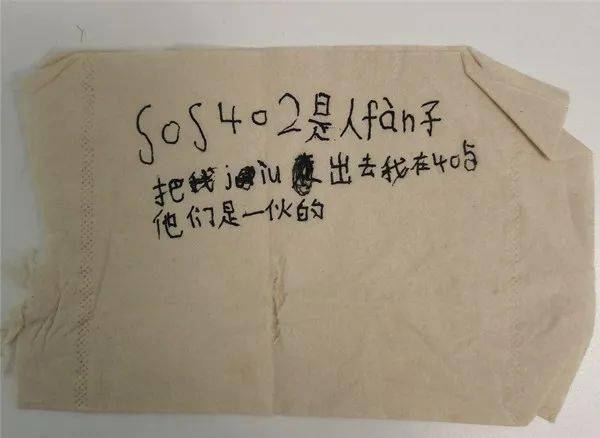 SOS402是人fàn子
把我jiu出去我在405
他们是一伙的